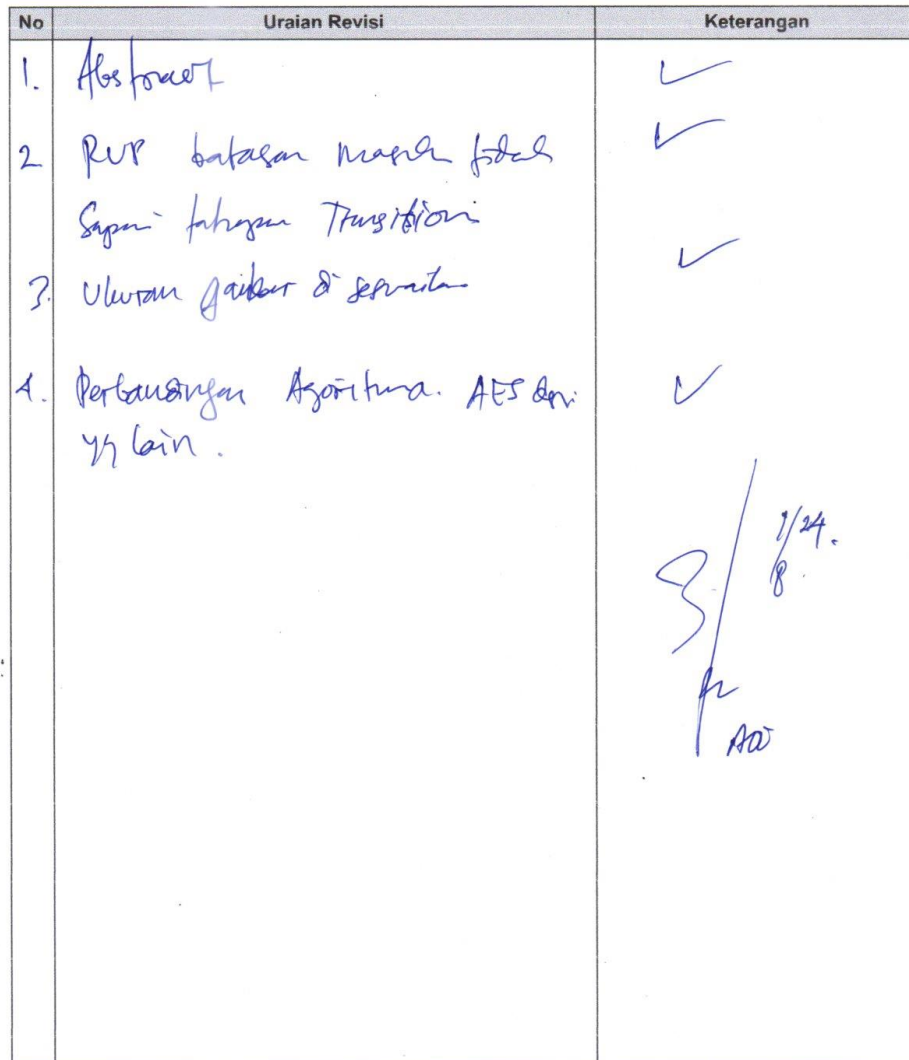 No Uraian Revisi Keterangan
1. Abstract ✓
2 RUP batasan masalah tidak ✓
Sampai tahapan Transition
3. Ukuran gambar disesuaikan ✓
4. Perbandingan Agoritma. AES dan ✓
yg lain.
1/24.
8